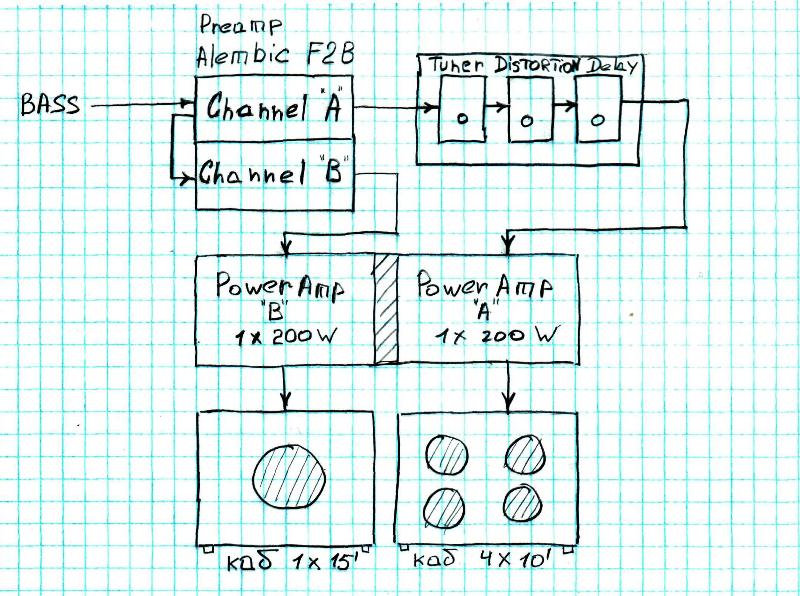 Preamp
Alembic F2B
Tuner DISTORTION Delay
BASS
Channel "A"
Channel "B"
Power Amp
"B"
1 x 200 W
Power Amp
"A"
1 x 200 W
каб 1 x 15'
каб 4 x 10'